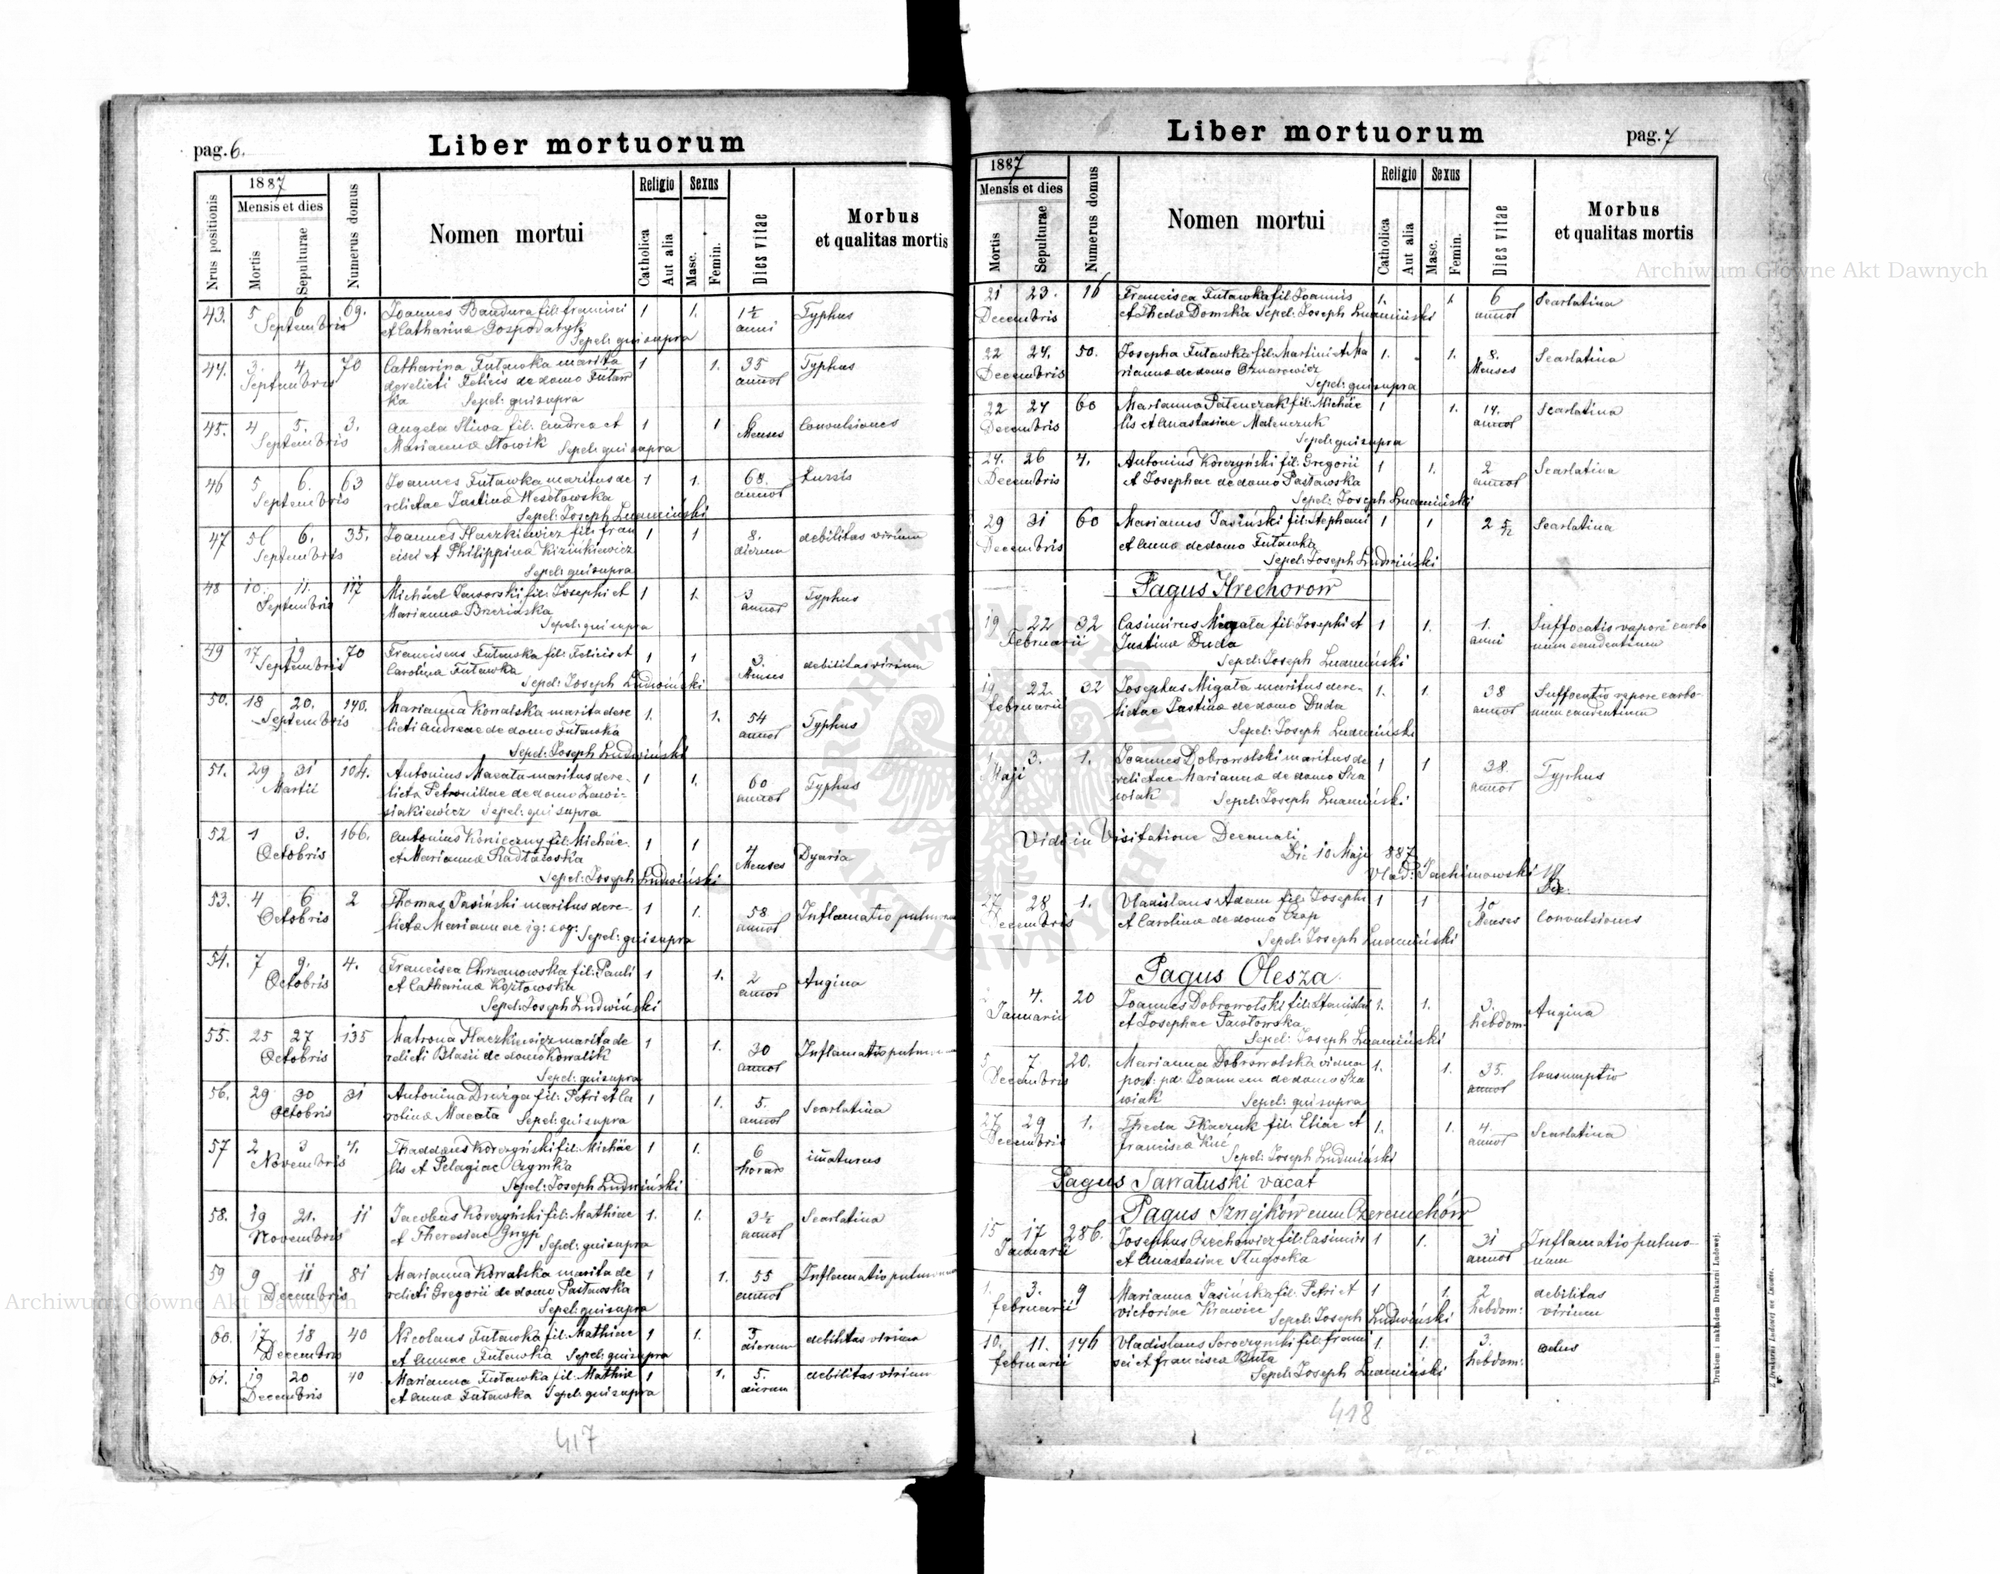 pag. 6.
Liber mortuorum
Nrus positionis
1887
Mensis et dies
Mortis
Sepulturae
Numerus domus
Nomen mortui
Religio
Catholica
Aut alia
Sexus
Masc.
Femin.
Dies vitae
Morbus
et qualitas mortis
43. 5 6 69. Joannes Bandura fil: francisci 1 1. 1½ Typhus
Septembris et Catharinæ Gospodatyk anni
Sepel: qui supra
44. 3. 4. 70 Catharina Futawka marita 1 1. 35 Typhus
Septembris derelicti Felicis de domo Futaw annor
ka Sepel: qui supra
45. 4 5. 3. Angela Sliwa fil: Andreæ et 1 1 6 Convulsiones
Septembris Mariannæ Stowik Sepel: qui supra Menses
46 5 6. 63 Joannes Futawka maritus de 1 1. 68. Tussis
Septembris relictae Justinæ Wesotowska annor
Sepel: Joseph Ludwiński
47 5 6. 35. Joannes Haczkiewicz fil: fran 1 1 8. debilitas virium
Septembris cisci et Philippinæ Kizinkiewicz dierum
Sepel: qui supra
48 10. 11. 117 Michäel Jaworski fil: Josephi et 1 1. 3 Typhus
Septembris Mariannæ Brzezinska annor
Sepel: qui supra
49 17 19 70 Franciscus Futawka fil: Felicis et 1 1 3. debilitas virium
Septembris Carolinæ Futawka Menses
Sepel: Joseph Ludwiński
50. 18 20. 140. Marianna Kowalska marita dere 1. 1. 54 Typhus
Septembris licti Andreae de domo Futawska annor
Sepel: Joseph Ludwiński
51. 29 31 104. Antonius Macata maritus dere- 1 1. 60 Typhus
Martii lictæ Petronillae de domo Zawi- annor
siakiewicz Sepel: qui supra
52 1 3. 166. Antonius Konieczny fil: Michäe- 1 1 4 Dyaria
Octobris et Mariannæ Radtawska Menses
Sepel: Joseph Ludwiński
53. 4 6 2 Thomas Jasiński maritus dere- 1 1. 58 Inflamatio pulmonum
Octobris lictæ Mariannae ig: cog: Sepel: qui supra annor
54. 7 9. 4. Francisca Chrzanowska fil: Pauli 1 1. 2 Angina
Octobris et Catharinæ Koztowska annor
Sepel: Joseph Ludwiński
55. 25 27 135 Matrona Haczkiewicz marita de 1 1. 30 Inflamatio pulmo
Octobris relicti Blasii de domo Kowalik annor
Sepel: qui supra
56. 29 30 31 Antonina Drużga fil: Petri et Ca 1 1. 5. Scarlatina
Octobris rolinæ Macata Sepel: qui supra annor
57 2 3 4. Thaddäus Korczyński fil: Michäe 1 1. 6 immaturus
Novembris lis et Pelagiae Czymka horae
Sepel: Joseph Ludwiński
58. 19 21. 11 Jacobus Korczyński fil: Mathiae 1. 1. 3½ Scarlatina
Novembris et Theresiae Gnyp annor
Sepel: qui supra
59 9 11 81 Marianna Kowalska marita de 1 1. 55 Inflamatio pulmonum
Decembris relicti Gregorii de domo Pastawska annor
Sepel: qui supra
60. 17 18 40 Nicolaus Futawka fil: Mathiae 1 1. 3 debilitas virium
Decembris et Annae Futawska Sepel: qui supra dierum
61. 19 20 40 Marianna Futawka fil: Mathiæ 1 1. 5. debilitas virium
Decembris et Annæ Futawska Sepel: qui supra dierum
417
Liber mortuorum
pag. 7
1887
Mensis et dies
Mortis
Sepulturae
Numerus domus
Nomen mortui
Religio
Catholica
Aut alia
Sexus
Masc.
Femin.
Dies vitae
Morbus
et qualitas mortis
21 23. 16 Francisca Futawka fil: Joannis 1. 1. 6 Scarlatina
Decembris et Thedæ Domska Sepel: Joseph Ludwiński annor
22 24. 50. Josepha Futawka fil: Martini et Ma 1. 1. 8. Scarlatina
Decembris riannæ de domo Oznarowicz Menses
Sepel: qui supra
22 24 60 Marianna Patenczak fil: Michäe 1 1. 14. Scarlatina
Decembris lis et Anastasiae Matenczuk annor
Sepel: qui supra
24. 26 4. Antonius Korczyński fil: Gregorii 1 1. 2 Scarlatina
Decembris et Josephae de domo Pastawska annor
Sepel: Joseph Ludwiński
29 31 60 Marianus Jasiński fil: Stephani 1 1 2 5/12 Scarlatina
Decembris et Annæ de domo Futawka
Sepel: Joseph Ludwiński
Pagus Hrechorow
19 22 32 Casimirus Migata fil: Josephi et 1 1. 1. Suffocatis vapore carbo
Februarii Justinæ Duda anni num candentinum
Sepel: Joseph Ludwiński
19 22. 32 Josephus Migata maritus dere- 1. 1. 38 Suffocatio vapore carbo
februarii lictae Justinæ de domo Duda annor num candentinum
Sepel: Joseph Ludwiński
1 3. 1. Joannes Dobrowolski maritus de 1 1 38. Typhus
Maji relictae Mariannæ de domo Sza annor
wiak Sepel: Joseph Ludwiński
Vidi in Visitatione Decanali
Die 10 Maji 887
Vlad: Jachimowski
27 28 1. Vladislaus Adam fil: Josephi 1 1 10 Convulsiones
Decembris et Carolinæ de domo Czop Menses
Sepel: Joseph Ludwiński
Pagus Olesza
4. 20 Joannes Dobrowolski fil: Stanislai 1. 1. 3. Angina
Januarii et Josephae Pawtowska hebdom:
Sepel: Joseph Ludwiński
5 7 20. Marianna Dobrowolska vidua 1. 1. 35. Consumptio
Decembris post: pd: Joannem de domo Sza annor
wiak Sepel: qui supra
27 29 1. Theda Tkaczuk fil: Eliae et 1. 1. 4. Scarlatina
Decembris franciscæ Kuć annor
Sepel: Joseph Ludwiński
Pagus Sawatuski vacat
Pagus Sznejków cum Czeremchów
15 17 286. Josephus Orzechowicz fil: Casimiri 1 1. 31 Inflamatio pulmo-
Januarii et Anastasiae Stugocka annor num
1. 3. 9 Marianna Jasińska fil: Petri et 1 1. 2 debilitas
februarii victoriae Krawiec hebdom: virium
Sepel: Joseph Ludwiński
10. 11. 146 Vladislaus Soroczynski fil: franci 1. 1. 3.
februarii sci et francisca Buta hebdom:
Sepel: Joseph Ludwiński
418
Drukiem i nakładem Drukarni Ludowej.
Z Drukarni Ludowej we Lwowie.
Archiwum Główne Akt Dawnych
Archiwum Główne Akt Dawnych
ARCHIWUM GŁÓWNE AKT DAWNYCH